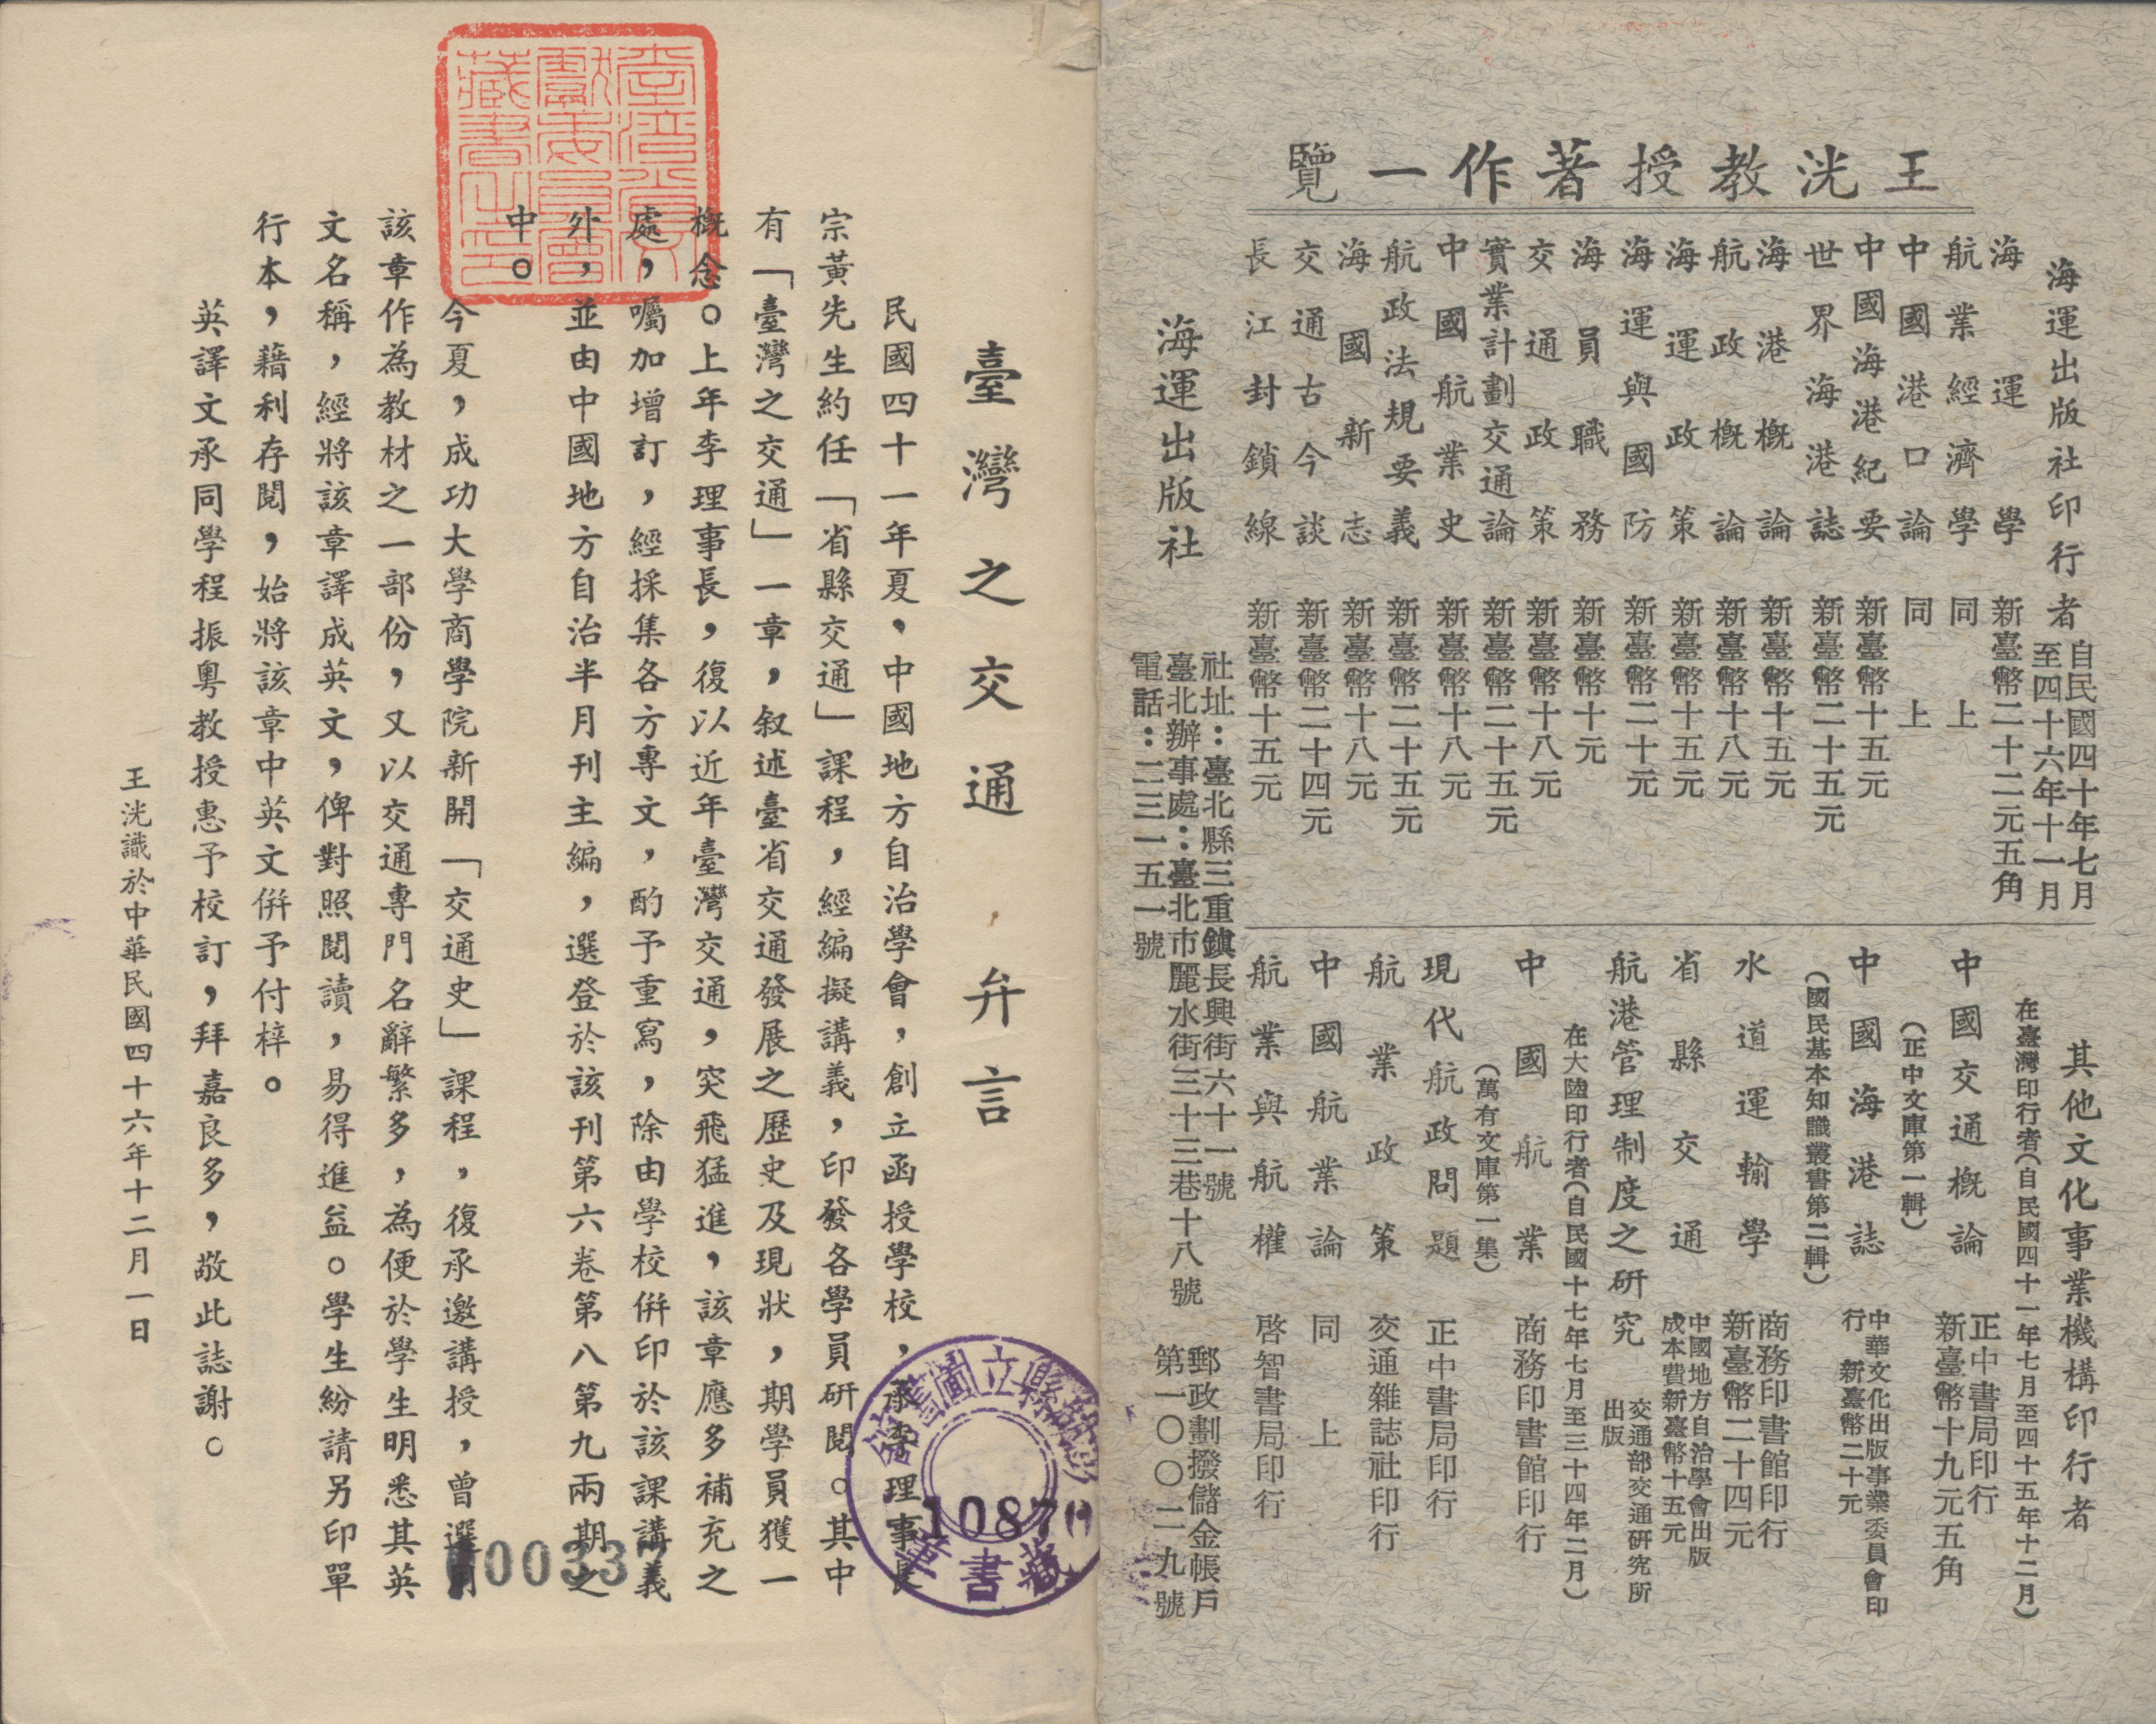 王洸教授著作一覽
海運出版社印行者
自民國四十年七月
至四十六年十一月
海運學 新臺幣二十二元五角
航業經濟學 同上
中國港口論 同上
中國海港紀要 新臺幣十五元
世界海港誌 新臺幣二十五元
海港概論 新臺幣十五元
航政概論 新臺幣十八元
海運政策 新臺幣十五元
海運與國防 新臺幣二十元
海員職務 新臺幣十元
交通政策 新臺幣十八元
實業計劃交通論 新臺幣二十五元
中國航業史 新臺幣十八元
航政法規要義 新臺幣二十五元
海國新志 新臺幣十八元
交通古今談 新臺幣二十四元
長江封鎖線 新臺幣十五元
其他文化事業機構印行者
在臺灣印行者（自民國四十一年七月至四十五年十二月）
中國交通概論 正中書局印行
新臺幣十九元五角
（正中文庫第一輯）
中國海港誌 中華文化出版事業委員會印
行 新臺幣二十元
（國民基本知識叢書第二輯）
水道運輸學 商務印書館印行
新臺幣二十四元
省縣交通 中國地方自治學會出版
成本費新臺幣十五元
航港管理制度之研究 交通部交通研究所
出版
在大陸印行者（自民國十七年七月至三十四年二月）
中國航業 商務印書館印行
（萬有文庫第一集）
現代航政問題 正中書局印行
航業政策 交通雜誌社印行
中國航業論 同上
航業與航權 啓智書局印行
海運出版社
社址：臺北縣三重鎮長興街六十一號
臺北辦事處：臺北市麗水街三十三巷十八號
電話：二三一五一號
郵政劃撥儲金帳戶
第一〇〇二九號
臺灣之交通弁言
民國四十一年夏，中國地方自治學會，創立函授學校，承李理事長
宗黃先生約任「省縣交通」課程，經編擬講義，印發各學員研閱。其中
有「臺灣之交通」一章，叙述臺省交通發展之歷史及現狀，期學員獲一
概念。上年李理事長，復以近年臺灣交通，突飛猛進，該章應多補充之
處，囑加增訂，經採集各方專文，酌予重寫，除由學校併印於該課講義
外，並由中國地方自治半月刊主編，選登於該刊第六卷第八第九兩期之
中。
今夏，成功大學商學院新開「交通史」課程，復承邀講授，曾選用
該章作為教材之一部份，又以交通專門名辭繁多，為便於學生明悉其英
文名稱，經將該章譯成英文，俾對照閱讀，易得進益。學生紛請另印單
行本，藉利存閱，始將該章中英文併予付梓。
英譯文承同學程振粵教授惠予校訂，拜嘉良多，敬此誌謝。
王洸識於中華民國四十六年十二月一日
臺灣省文
獻委員會
藏書之印
縣立圖書館
10870
藏書章